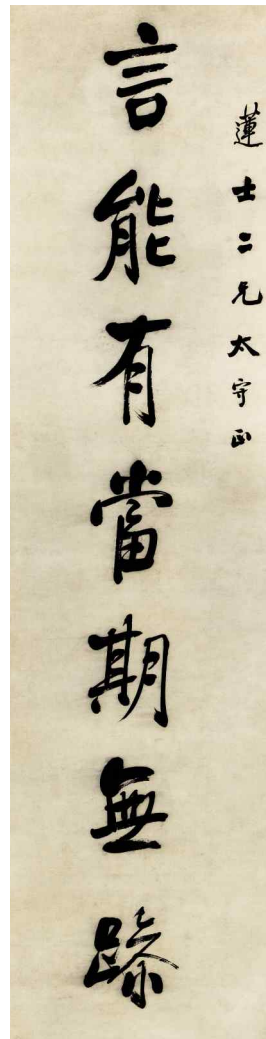 蓮士二兄太守正
言能有當期無躁